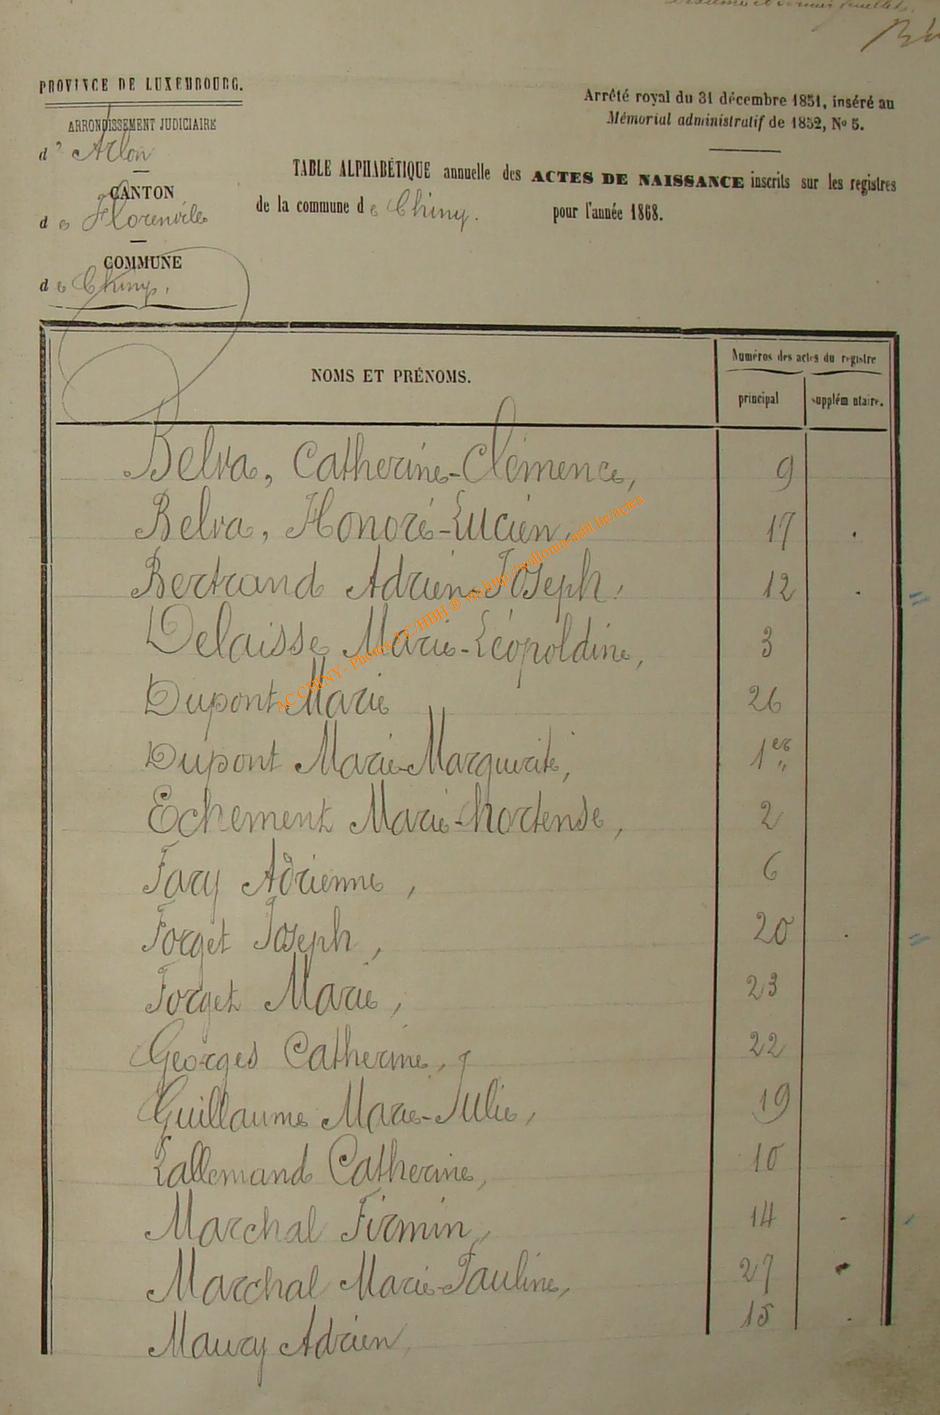 PROVINCE DE LUXEMBOURG.
ARRONDISSEMENT JUDICIAIRE
d' Arlon
CANTON
de Florenville
COMMUNE
de Chiny.
Arrêté royal du 31 décembre 1851, inséré au
Mémorial administratif de 1852, No 5.
TABLE ALPHABÉTIQUE annuelle des ACTES DE NAISSANCE inscrits sur les registres
de la commune de Chiny. pour l'année 1868.
NOMS ET PRÉNOMS.
Numéros des actes du registre
principal
supplémentaire.
Belva, Catherine-Clémence, 9
Belva, Honoré-Lucien, 17
Bertrand Adrien-Joseph, 12
Delaisse Marie-Léopoldine, 3
Dupont Marie 26
Dupont Marie-Marguerite, 1er
Echement Marie-hortense, 2
Fary Adrienne, 6
Forget Joseph, 20
Forget Marie, 23
Georges Catherine, 22
Guillaume Marie-Julie, 19
Lallemand Catherine, 10
Marchal Firmin, 14
Marchal Marie-Pauline, 27
Maury Adrien 15